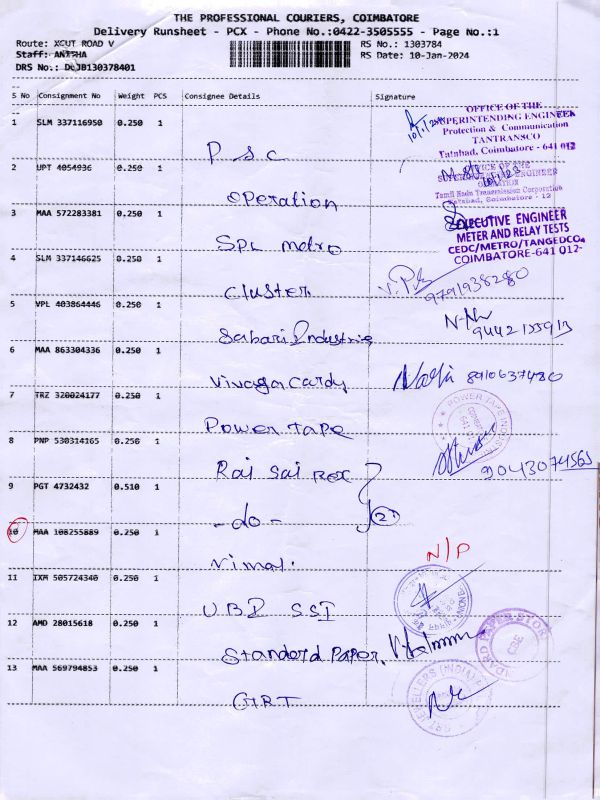 THE PROFESSIONAL COURIERS, COIMBATORE
Delivery Runsheet - PCX - Phone No.:0422-3505555 - Page No.:1
Route: XCUT ROAD V RS No.: 1303784
Staff: RS Date: 10-Jan-2024
DRS No.:
S No Consignment No Weight PCS Consignee Details Signature
1 SLM 337116950 0.250 1 P S C
OFFICE OF THE
SUPERINTENDING ENGINEER
Protection & Communication
TANTRANSCO
Tatabad, Coimbatore - 641 012
2 UPT 4054936 0.250 1 Operation
OFFICE OF THE
Tamil Nadu Transmission Corporation
Tatabad, Coimbatore - 12
3 MAA 572283381 0.250 1 SPL metro
EXECUTIVE ENGINEER
METER AND RELAY TESTS
CEDC/METRO/TANGEDCO
COIMBATORE-641 012
4 SLM 337146625 0.250 1 Cluster 9791938280
5 VPL 403864446 0.250 1 Sabari Industries
6 MAA 863304336 0.250 1 Vinayaga Cards 8910637480
7 TRZ 320024177 0.250 1 Power tape
POWER TAPE INDUSTRIES
8 PNP 530314165 0.250 1 Rai Sai Rex 9043074565
9 PGT 4732432 0.510 1 -do- 2
10 MAA 108255889 0.250 1 Vimal. N/P
11 IXM 505724340 0.250 1 UBI SSI
12 AMD 28015618 0.250 1 Standard Paper.
CBE
13 MAA 569794853 0.250 1 GRT
GRT JEWELLERS (INDIA)